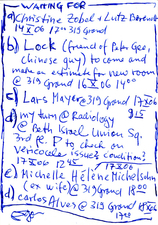 WAITING FOR
a) Christine Zobel + Lutz
14 X 06 12°° 319 Grand
b) Lock (friend of Pam Gee,
chinese guy) to come and
make an estimate for new room
@ 319 Grand 16 X 06 14°°
c) Lars Mayer @ 319 Grand 17 X 06
d) my turn @ Radiology 8 15
@ Beth Israel Union Sq.
3rd fl. P to check on
vericocele issues & condition?
17 X 06 12 45 17 X 06
e) Michelle Hélène Michelsohn
(ex wife) @ 319 Grand 18°°
d) Carlos Alves @ 319 Grand 18 X 06
17°°